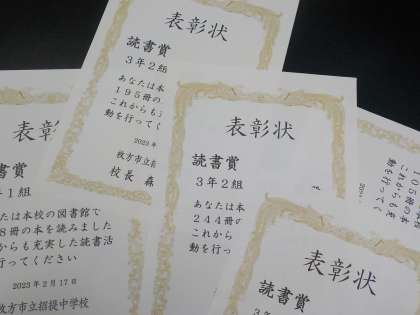 表彰状
読書賞
3年2組
あなたは本
195冊の
これからも
動を行ってく
2023年
枚方市立
校長 森
表彰状
読書賞
3年2組
あなたは本
244冊の
これから
動を行っ
表彰状
読書賞
3年
表
書賞
年1組
たは本校の図書館で
8冊の本を読みました
からも充実した読書活
行ってください
2023年2月17日
枚方市立招提中学校
105冊の本
これからも充
動を行ってく